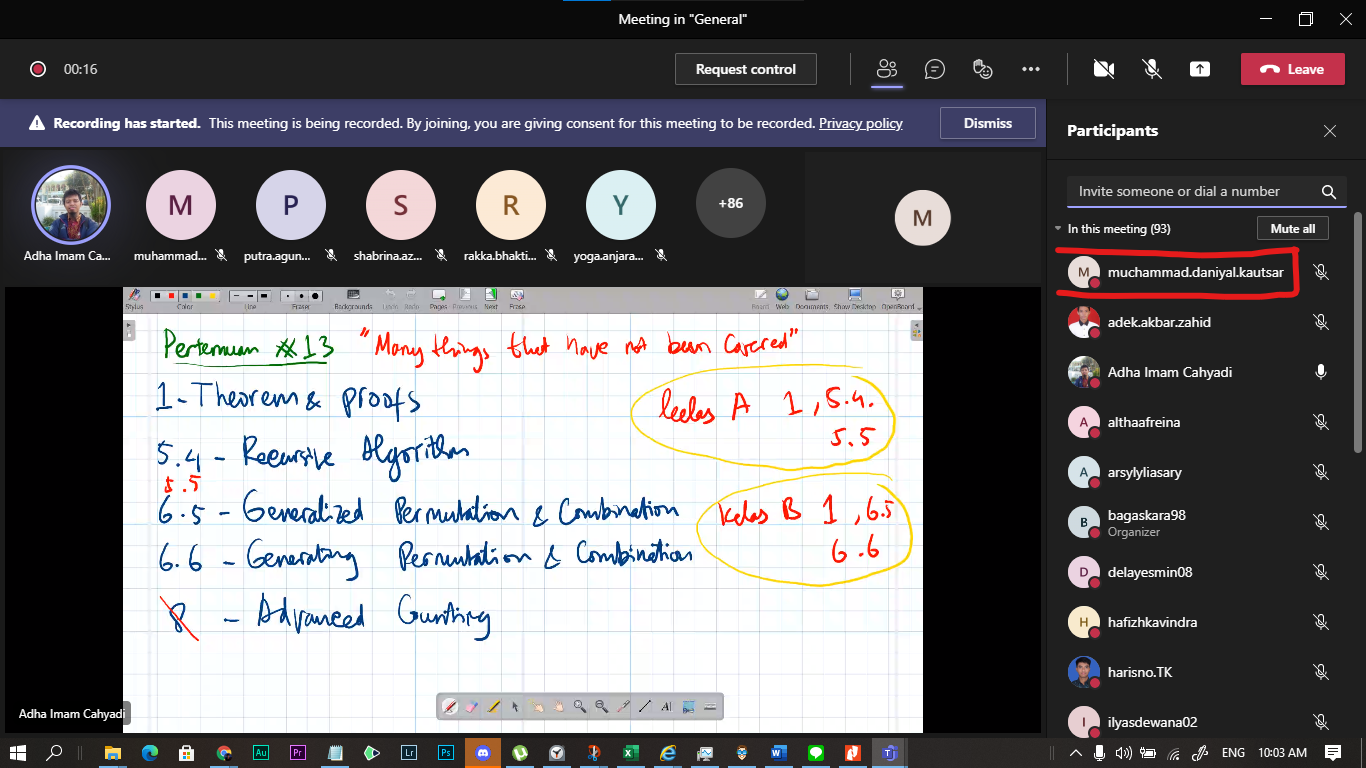 Meeting in "General"
00:16
Request control
Leave
Recording has started. This meeting is being recorded. By joining, you are giving consent for this meeting to be recorded. Privacy policy
Dismiss
M
P
S
R
Y
+86
M
Adha Imam Ca...
muhammad....
putra.agun...
shabrina.az...
rakka.bhakti...
yoga.anjara...
Stylus
Color
Eraser
Backgrounds
Undo
Redo
Pages
Previous
Next
Erase
Board
Web
Documents
Show Desktop
OpenBoard
Pertemuan #13 "Many things that have not been Covered"
1 - Theorem & proofs
kelas A 1, 5.4.
5.5
5.4 - Recursive Algorithm
5.5
6.5 - Generalized Permutation & Combination
kelas B 1, 6.5
6.6
6.6 - Generating Permutation & Combination
8 - Advanced Counting
Adha Imam Cahyadi
Participants
Invite someone or dial a number
In this meeting (93)
Mute all
M
muchammad.daniyal.kautsar
adek.akbar.zahid
Adha Imam Cahyadi
A
althaafreina
A
arsylyliasary
B
bagaskara98
Organizer
D
delayesmin08
H
hafizhkavindra
harisno.TK
I
ilyasdewana02
Au
Pr
Lr
Ps
ENG
10:03 AM